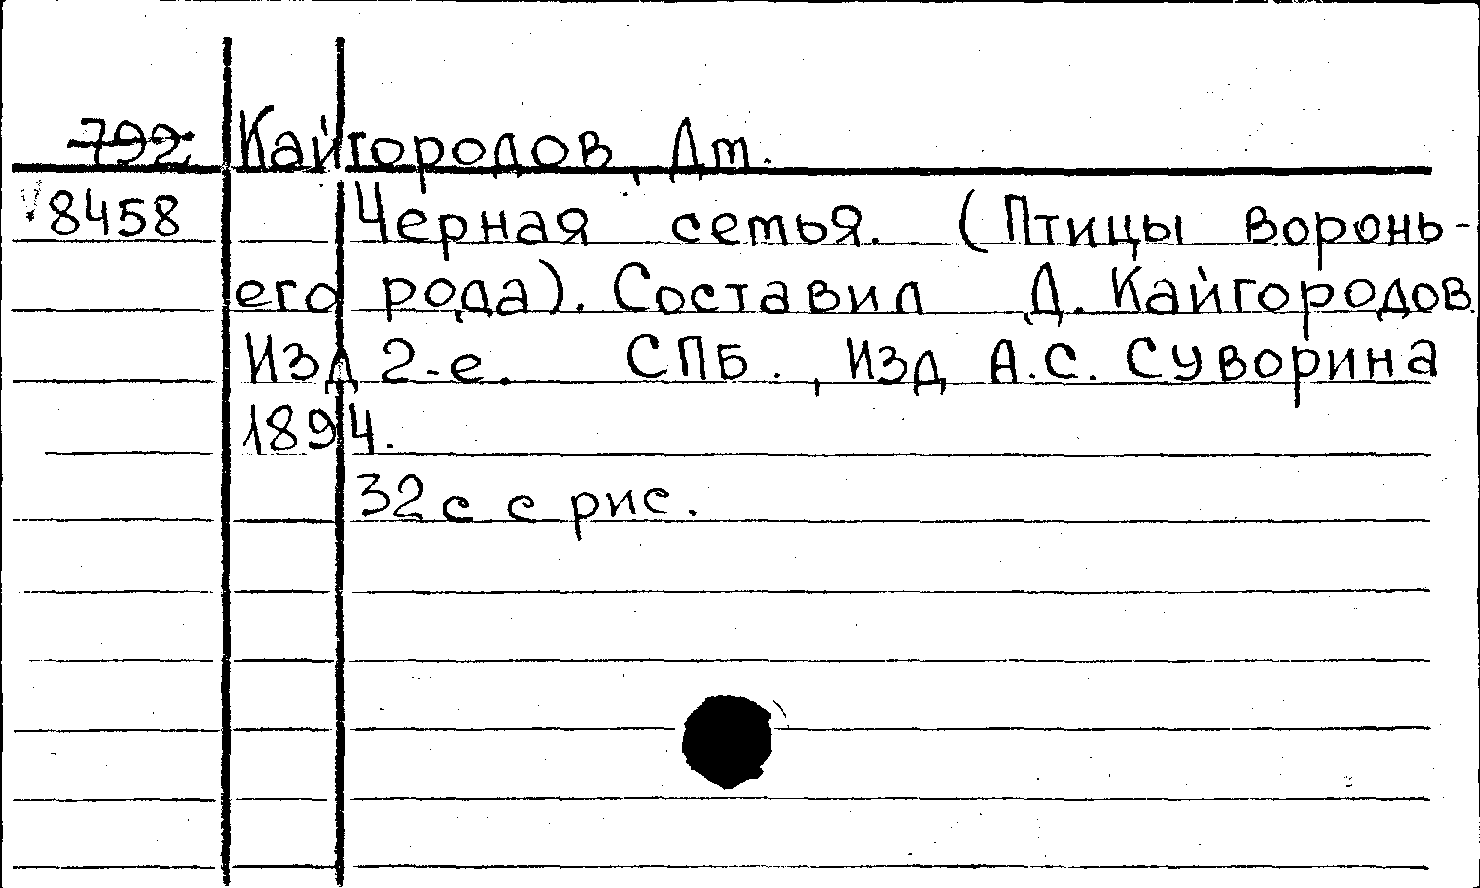 792 Кайгородов, Дм.
V 8458 Черная семья. (Птицы воронь-
его рода). Составил Д. Кайгородов.
Изд 2-е. СПБ., Изд А.С. Суворина
1894.
32 с с рис.